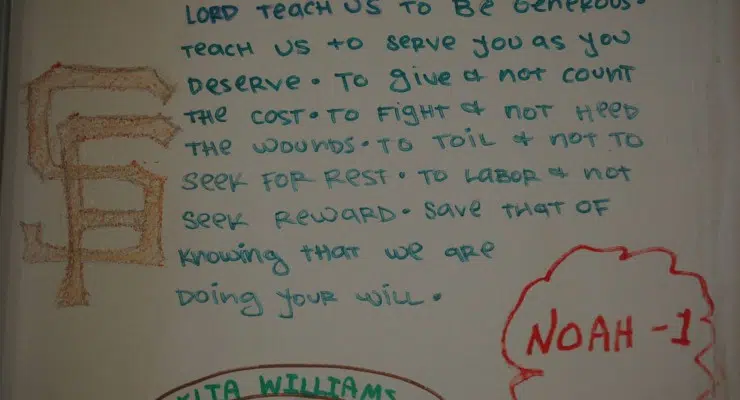 LORD TEACH US TO BE GENEROUS.
TEACH US TO SERVE YOU AS YOU
DESERVE. TO GIVE & NOT COUNT
THE COST. TO FIGHT & NOT HEED
THE WOUNDS. TO TOIL & NOT TO
SEEK FOR REST. TO LABOR & NOT
SEEK REWARD. SAVE THAT OF
KNOWING THAT WE ARE
DOING YOUR WILL.
SF
NOAH - 1
WILLIAMS